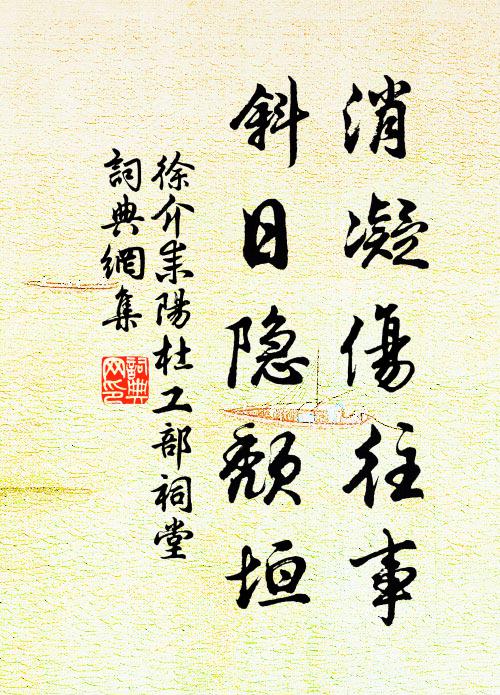 消凝傷往事
斜日隐頹垣
徐介耒陽杜工部祠堂
詞典網集
詞典网印